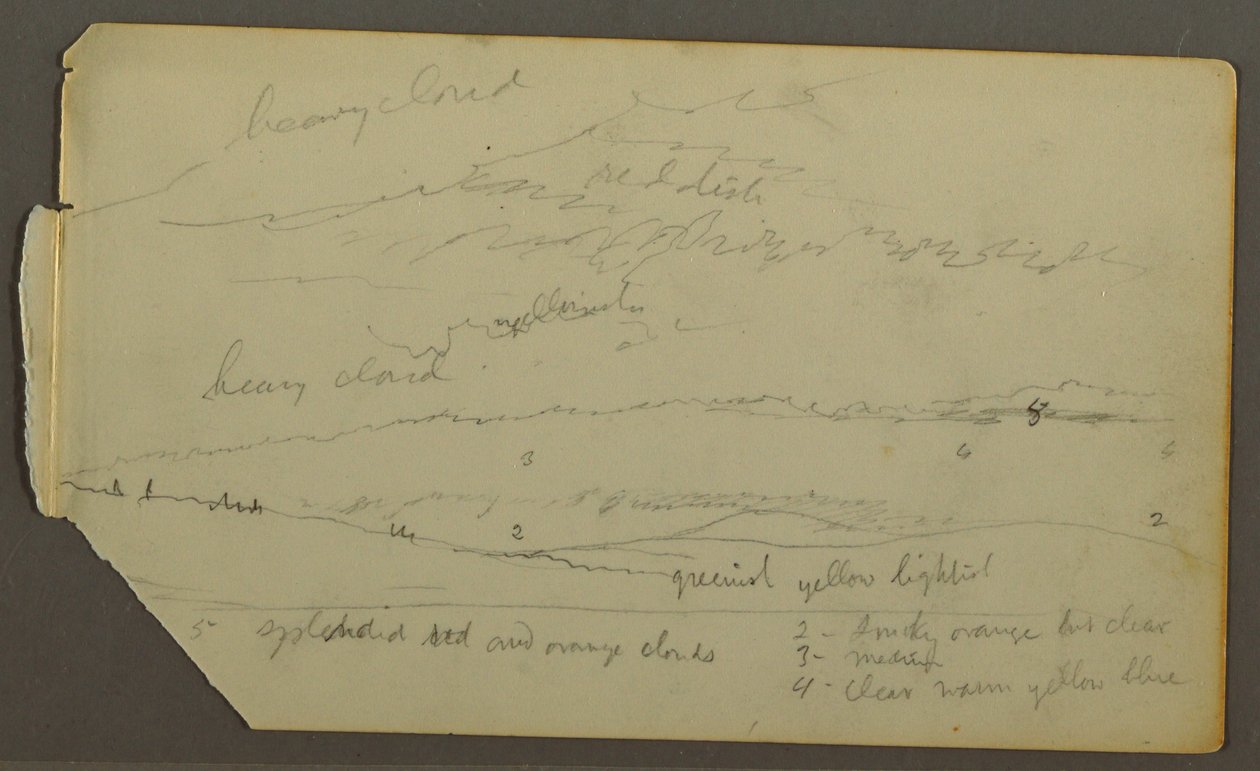 heavy cloud
reddish
yellowish
heavy cloud
5
3
4
4
2
2
greenish yellow lightish
5 splendid red and orange clouds
2 - smoky orange but clear
3 - medium
4 - clear warm yellow blue